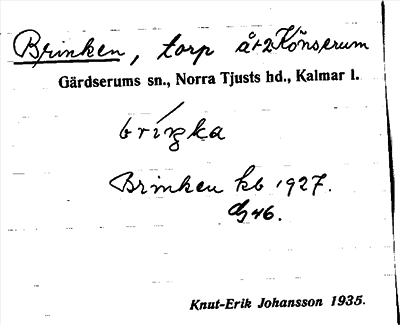 Brinken, torp å+2 Könserum
Gärdserums sn., Norra Tjusts hd., Kalmar l.
bríŋka
Brinken kb 1927.
46.
Knut-Erik Johansson 1935.